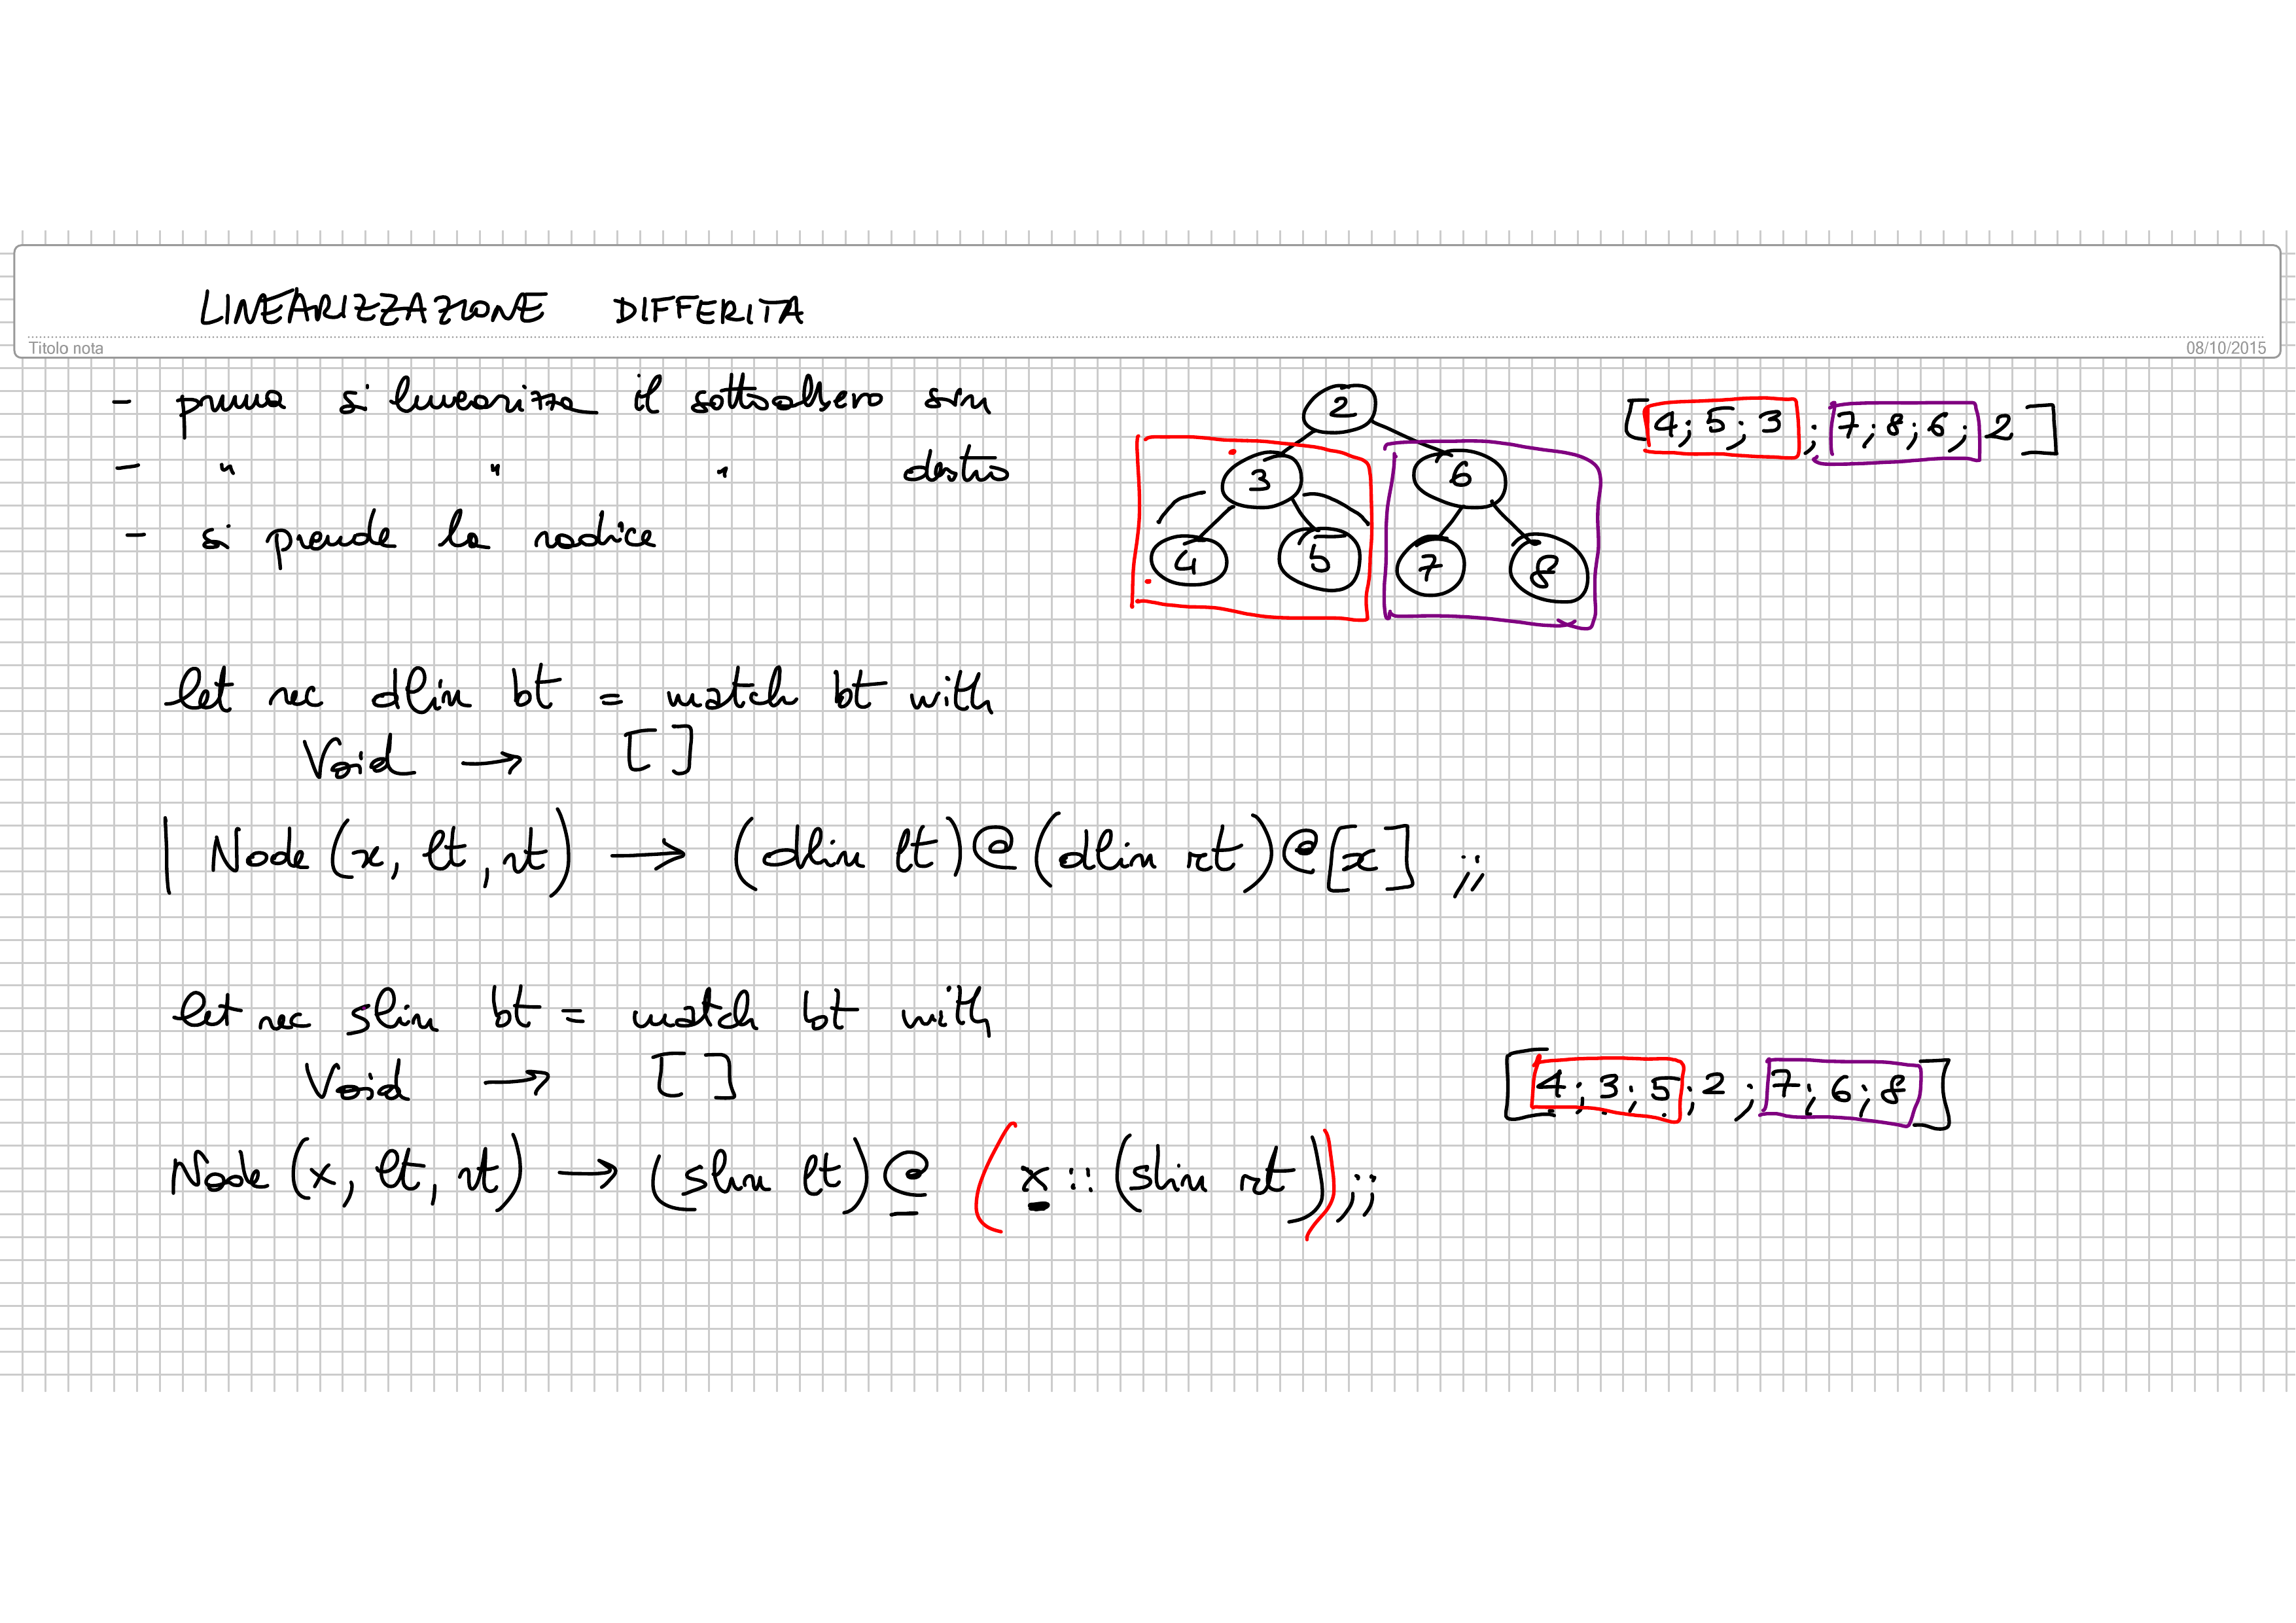 LINEARIZZAZIONE DIFFERITA
Titolo nota
08/10/2015
- prima si linearizza il sottoalbero sin
- " " " destro
- si prende la radice
2
3 6
4 5 7 8
[4; 5; 3; 7; 8; 6; 2]
let rec dlin bt = match bt with
Void → []
| Node (x, lt, rt) → (dlin lt)@(dlin rt)@[x] ;;
let rec slin bt = match bt with
Void → []
[4; 3; 5; 2; 7; 6; 8]
Node (x, lt, rt) → (slin lt) @ (x :: (slin rt));;